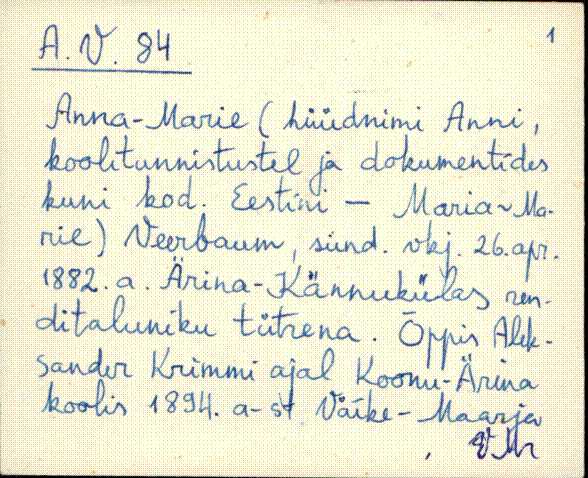 A. V. 84
1
Anna-Marie (hüüdnimi Anni,
koolitunnistustel ja dokumentides
kuni kod. Eestini — Maria ~ Ma-
rie) Veerbaum, sünd. vkj. 26. apr.
1882. a. Ärina-Kännukülas ren-
ditaluniku tütrena. Õppis Alek-
sander Krimmi ajal Koonu-Ärina
koolis 1894. a-st Väike-Maarja
VMr